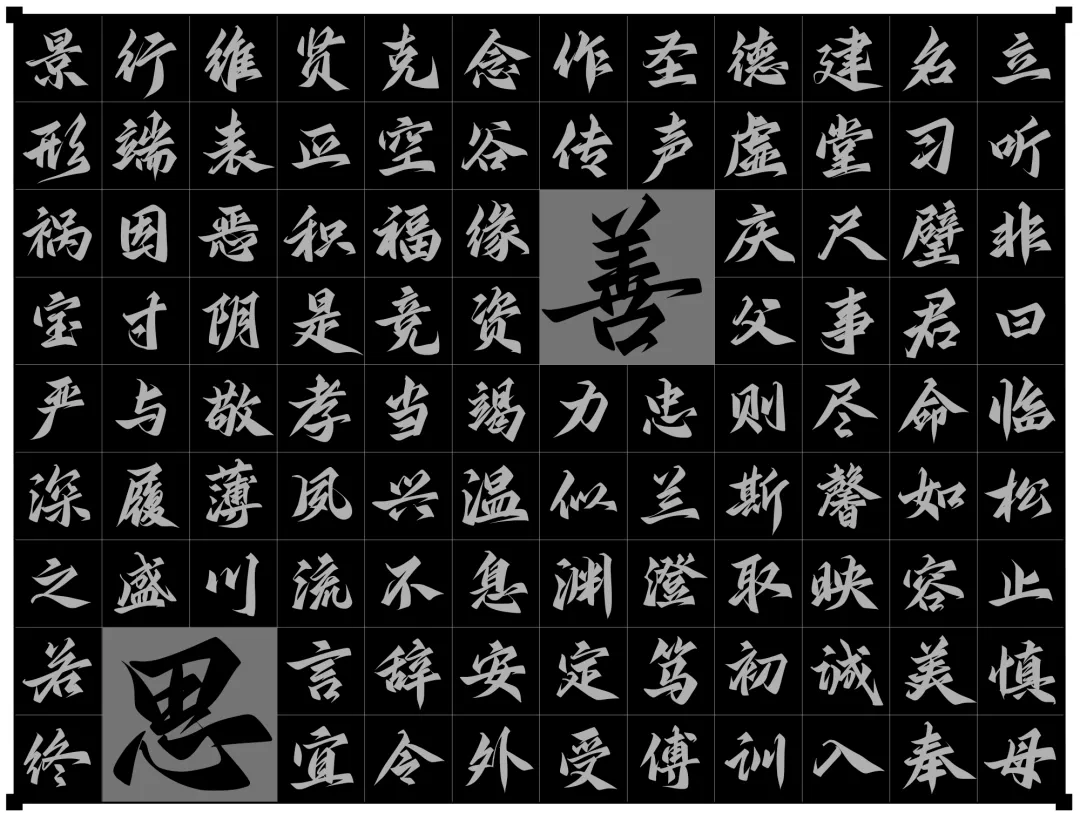 景行维贤克念作圣德建名立
形端表正空谷传声虚堂习听
祸因恶积福缘善庆尺璧非
宝寸阴是竞资父事君曰
严与敬孝当竭力忠则尽命临
深履薄夙兴温似兰斯馨如松
之盛川流不息渊澄取映容止
若思言辞安定笃初诚美慎
终宜令外受傅训入奉母